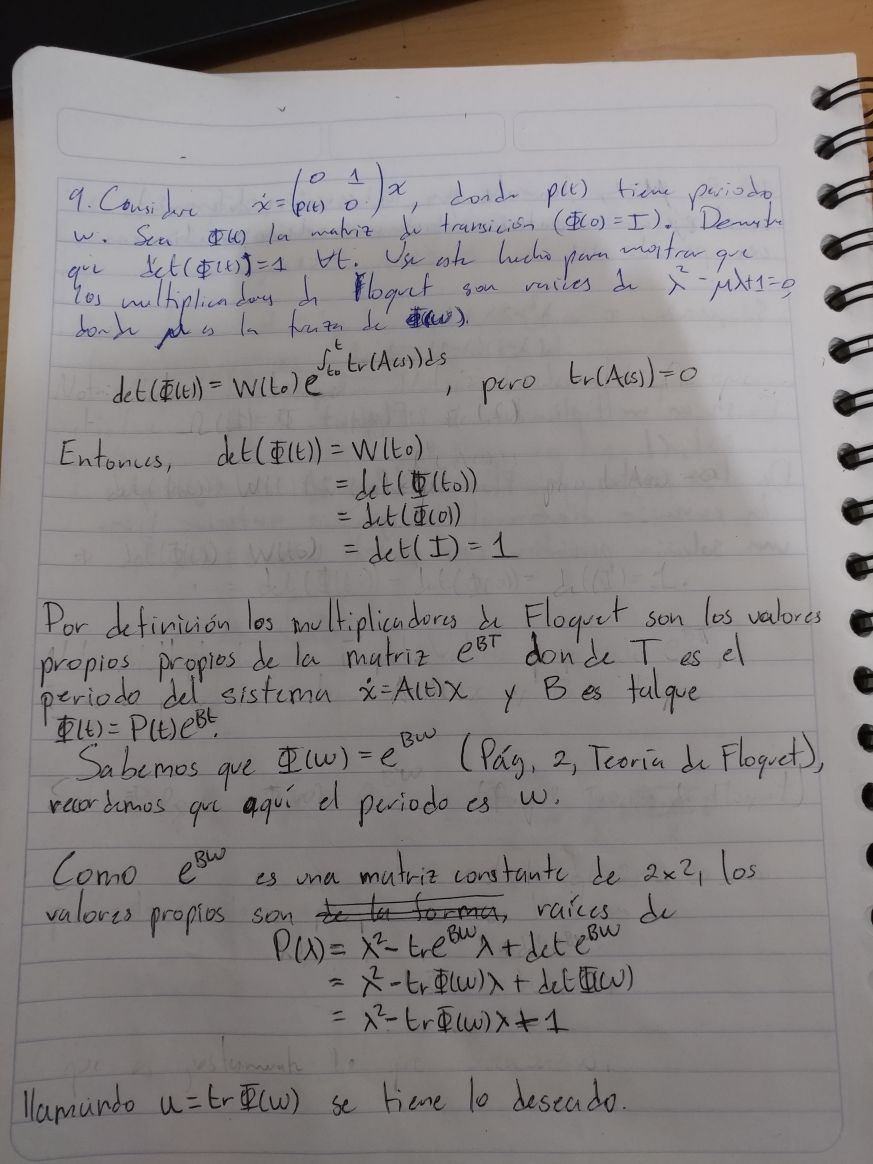 9. Considere ẋ = (0 1; p(t) 0) x, donde p(t) tiene periodo
w. Sea Φ(t) la matriz de transición (Φ(0) = I). Demuestre
que det(Φ(t)) = 1 ∀t. Use este hecho para mostrar que
los multiplicadores de Floquet son raíces de λ² - μλ + 1 = 0,
donde μ es la traza de Φ(w).
det(Φ(t)) = W(t₀) e^{∫_{t₀}^{t} tr(A(s)) ds}, pero tr(A(s)) = 0
Entonces, det(Φ(t)) = W(t₀)
= det(Φ(t₀))
= det(Φ(0))
= det(I) = 1
Por definición los multiplicadores de Floquet son los valores
propios propios de la matriz e^{BT} donde T es el
periodo del sistema ẋ = A(t)x y B es tal que
Φ(t) = P(t)e^{Bt}.
Sabemos que Φ(w) = e^{Bw} (Pág. 2, Teoría de Floquet),
recordemos que aquí el periodo es w.
Como e^{Bw} es una matriz constante de 2x2, los
valores propios son de la forma, raíces de
P(λ) = λ² - tr e^{Bw} λ + det e^{Bw}
= λ² - tr Φ(w) λ + det Φ(w)
= λ² - tr Φ(w) λ + 1
llamando u = tr Φ(w) se tiene lo deseado.